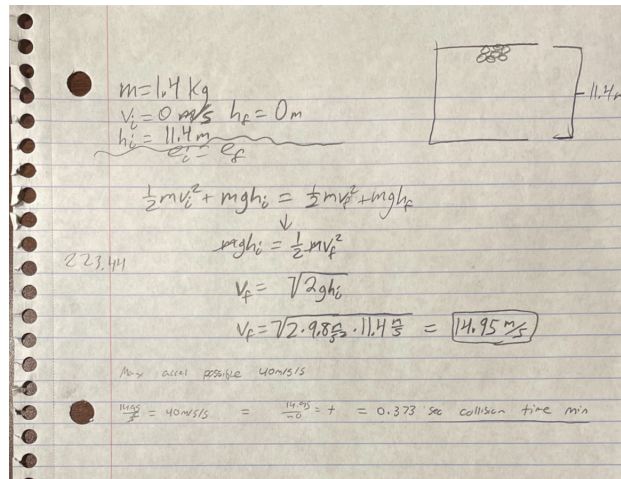 m=1.4 kg
vᵢ=0 m/s h_f=0m
hᵢ=11.4m
11.4
eᵢ=e_f
½mvᵢ²+mghᵢ=½mv_f²+mgh_f
↓
mghᵢ=½mv_f²
223.44
v_f=√2ghᵢ
v_f=√2·9.8m/s²·11.4m/s = 14.95 m/s
Max accel possible 40m/s/s
14.95/s = 40m/s/s = 14.95/40 = t = 0.373 sec collision time min